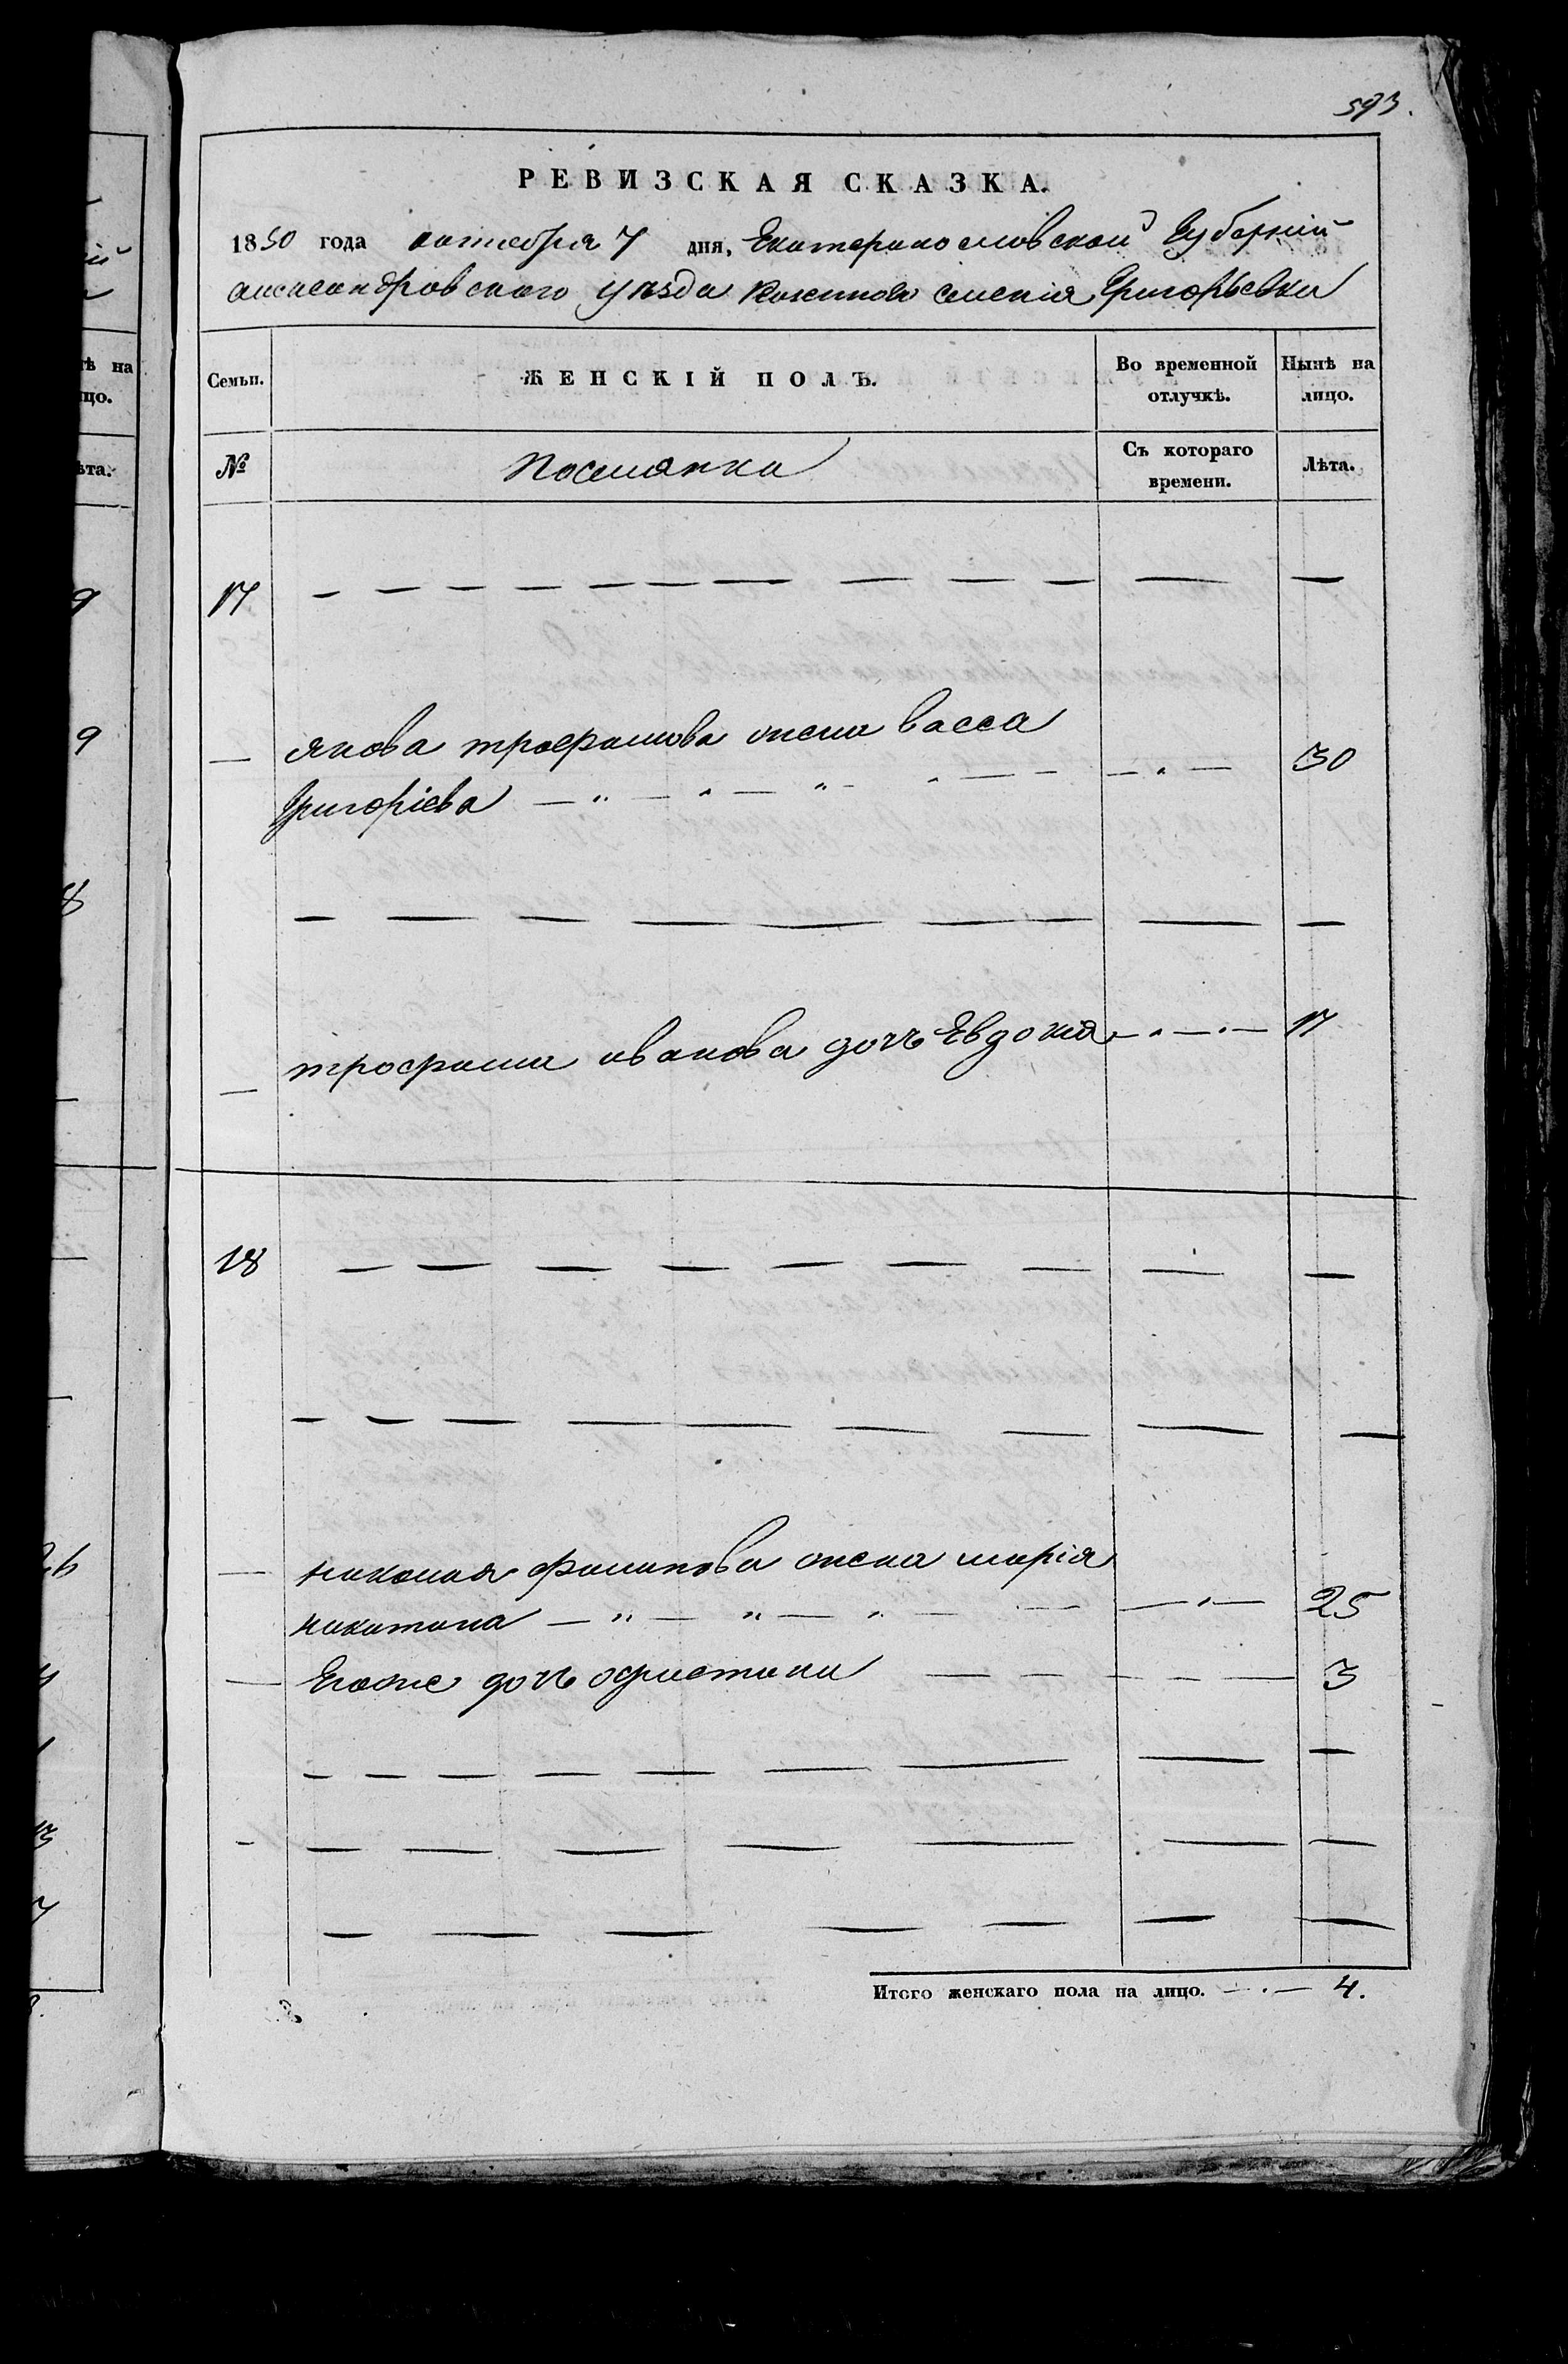 593.
РЕВИЗСКАЯ СКАЗКА.
1850 года октября 7 дня, Екатеринославской Губернии
александровского уезда селения Григорьевки
Семьи. ЖЕНСКІЙ ПОЛЪ. Во временной отлучкѣ. Нынѣ на лицо.
№ Поселянка Съ котораго времени. Лѣта.
17 — — — — — — — — — — — —
— якова трофимова жена васса
Григоріева — " — " — " — — — " — 30
— — — — — — — —
— трофима иванова дочь Евдокія — " — " — 17
18 — — — — — — — — —
— — — — — — — — —
— николая филипова жена марія
никитина — " — " — " — — — " — 25
— Егоже дочь фристина — — — — — 3
— — — — — — — — —
- — — — — — — —
— — — — — — —
Итого женскаго пола на лицо. — . — 4.